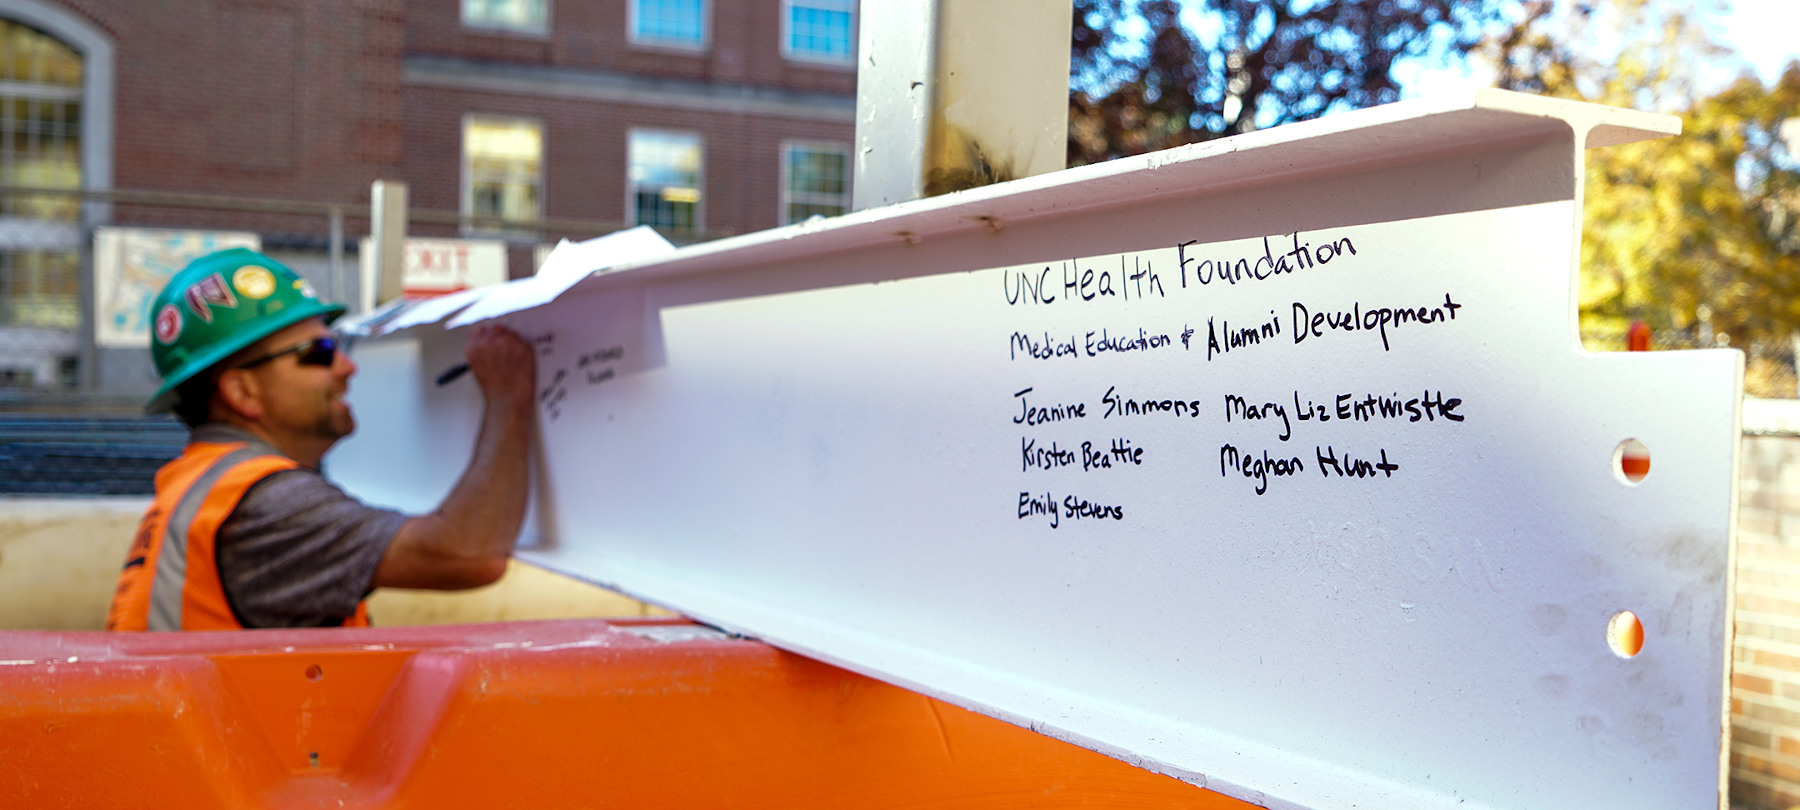 EXIT
UNC Health Foundation
Medical Education & Alumni Development
Jeanine Simmons Mary Liz Entwistle
Kirsten Beattie Meghan Hunt
Emily Stevens